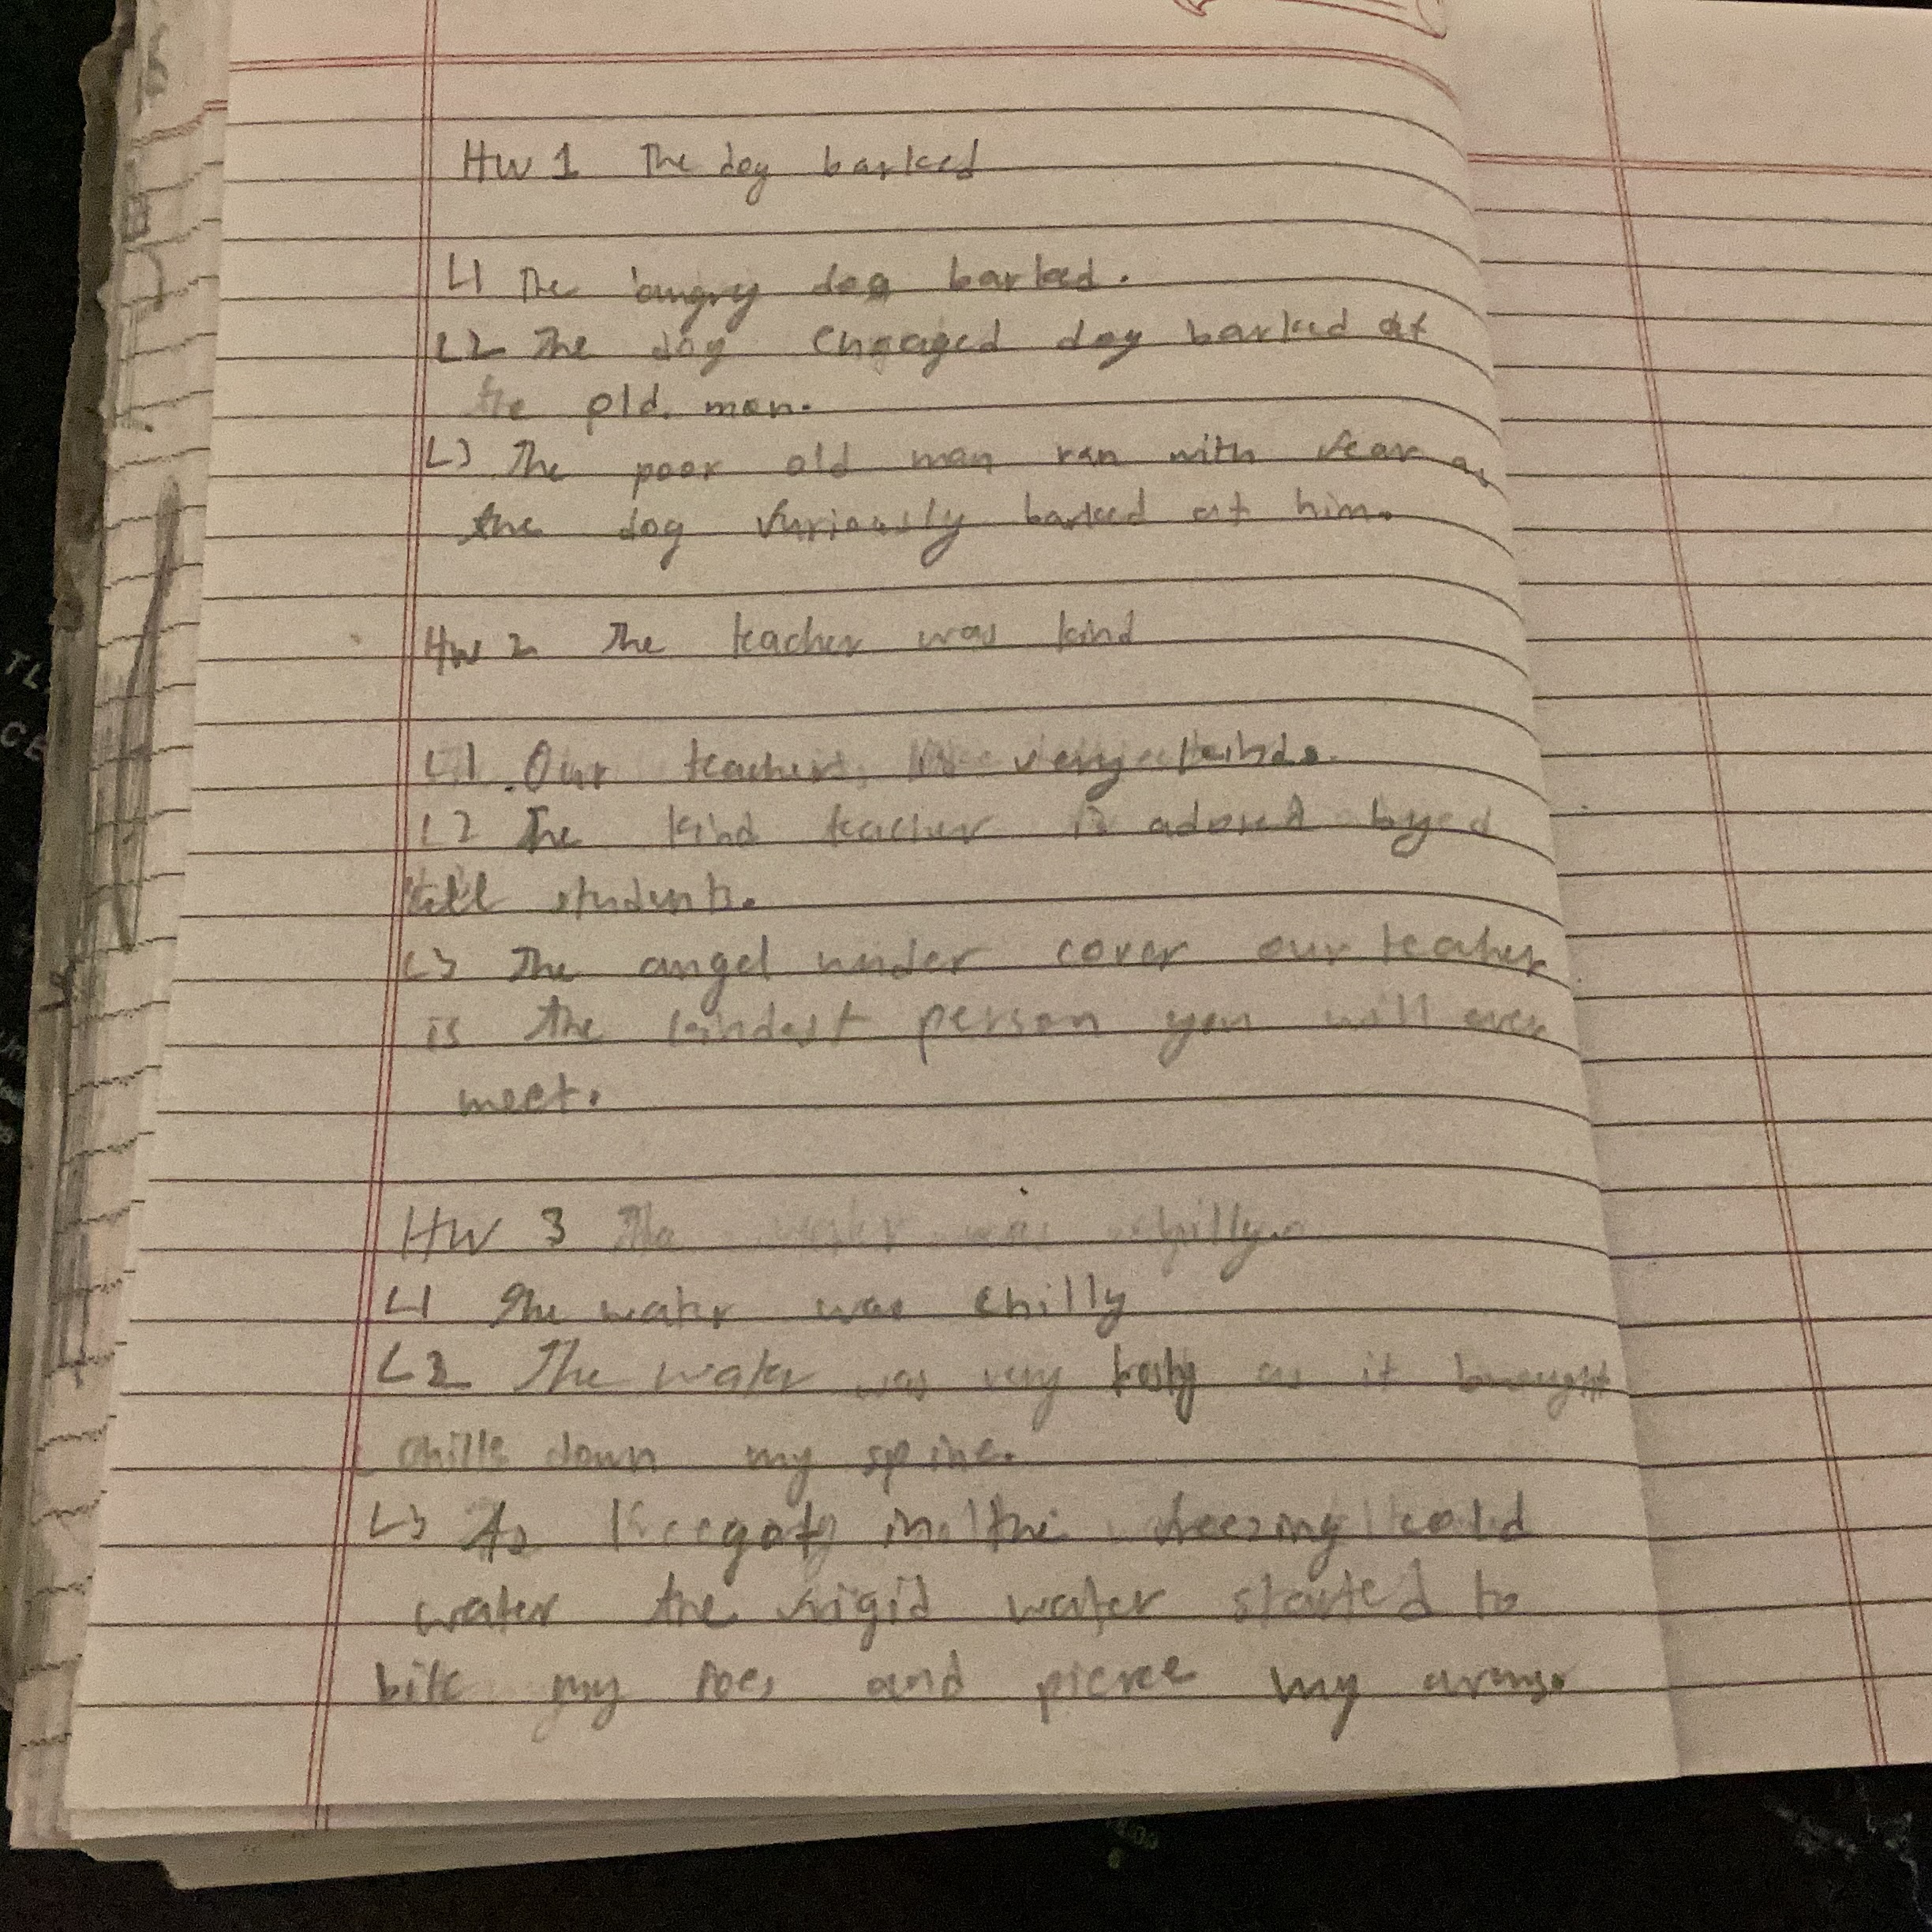 HW 1 The dog barked
L1 The angry dog barked.
L2 The dog engaged dog barked at
the old. man.
L3 The poor old man ran with fear as
the dog furiously barked at him.
HW 2 The teacher was kind
L1 Our teacher is very kind.
L2 The kind teacher is adored by
all students.
L3 The angel under cover our teacher
is the kindest person you will ever
meet.
HW 3 The water was chilly.
L1 The water was chilly
L2 The water was very as it brought
chills down my spine.
L3 As I got in the freezing cold
water the frigid water started to
bite my toes and pierce my arms.